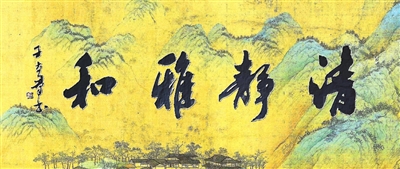 清静雅和